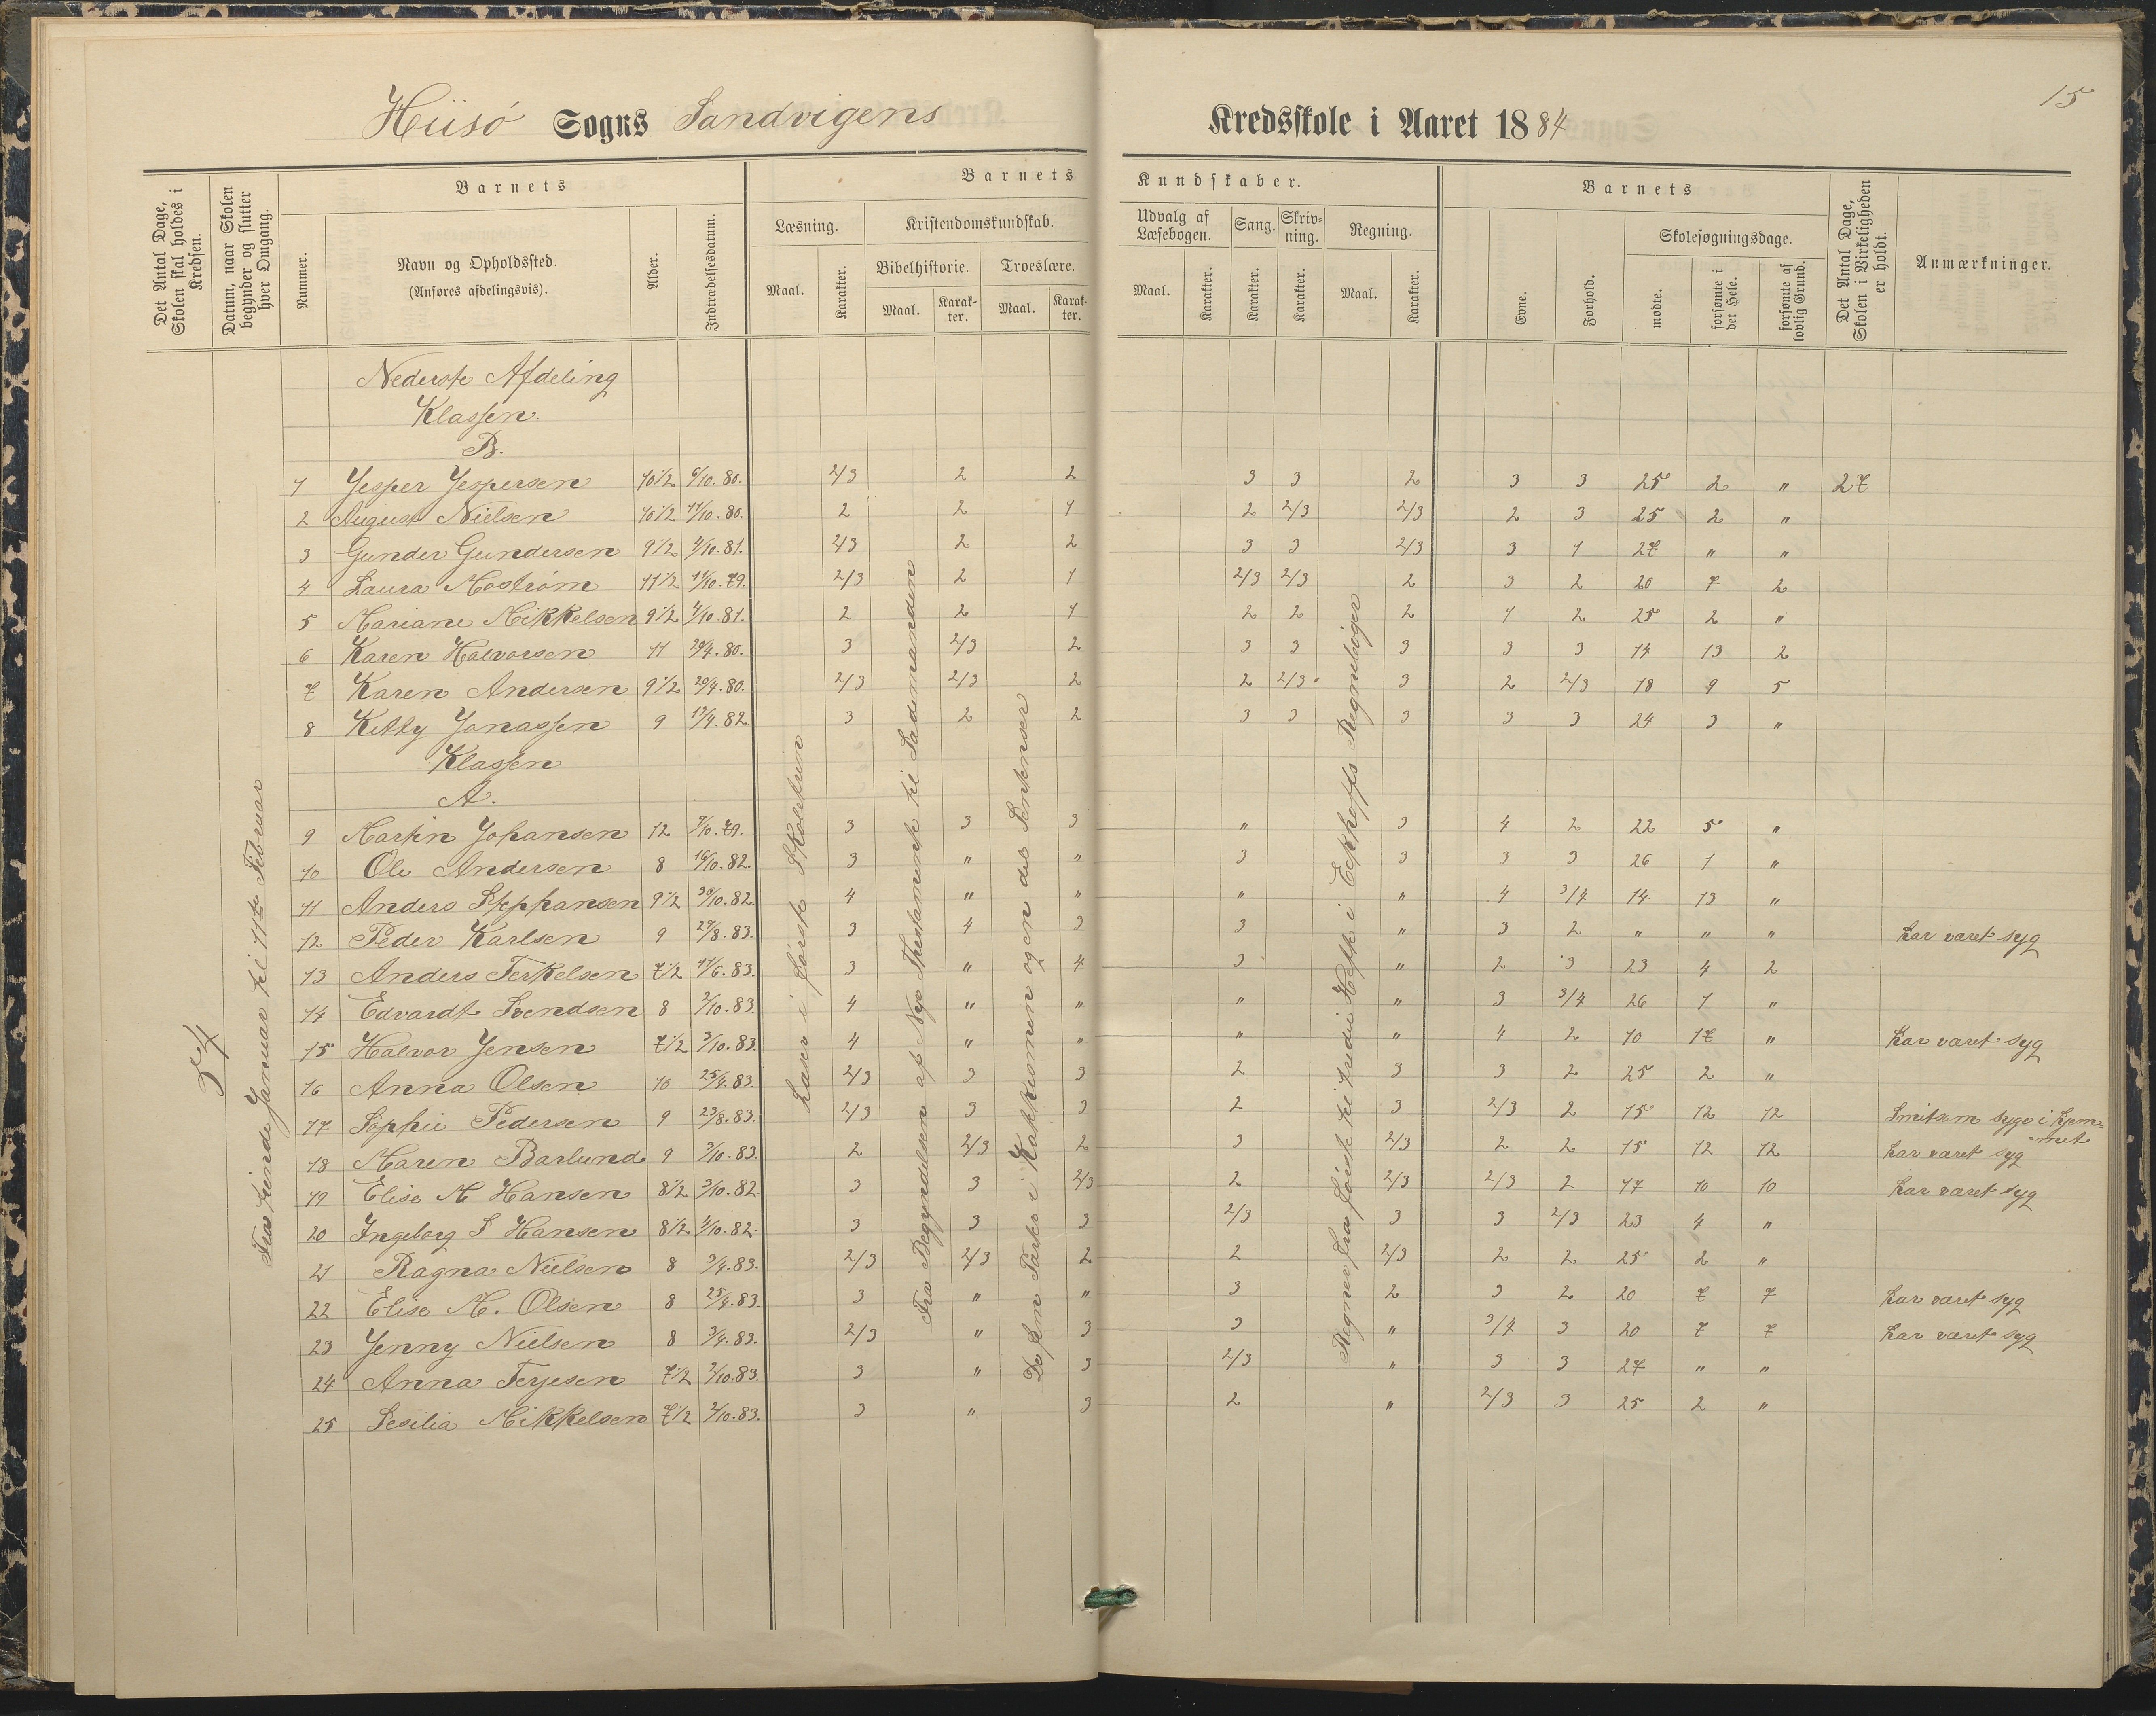 15
Hiisö Sogns Sandvigens Kredsskole i Aaret 1884
Det Antal Dage, Skolen skal holdes i Kredsen.
Datum, naar Skolen begynder og slutter hver Omgang.
Barnets
Nummer.
Navn og Opholdssted.
(Anføres afdelingsvis).
Alder.
Indtrædelsesdatum.
Barnets Kundskaber.
Læsning.
Maal.
Karakter.
Kristendomskundskab.
Bibelhistorie.
Maal.
Karak-
ter.
Troeslære.
Maal.
Karak-
ter.
Udvalg af
Læsebogen.
Maal.
Karakter.
Sang.
Karakter.
Skriv-
ning.
Karakter.
Regning.
Maal.
Karakter.
Barnets
Evne.
Forhold.
Skolesøgningsdage.
mødte.
forsømte i det Hele.
forsømte af lovlig Grund.
Det Antal Dage, Skolen i Virkeligheden er holdt.
Anmærkninger.
54
Fra tiende Januar til 11te Februar
Læser i første Skoletrin
Fra Begyndelsen af Nye Thestamente til Sædemanden
De fem Parter i Katekismen og en del Sentenser
Regner fra første til tredie Hefte i Eckhoffs Regnebøger
Nederste Afdeling
Klassen.
B.
1 Jesper Jespersen 10 1/2 6/10.80. 2/3 2 2 3 3 2 3 3 25 2 " 27
2 August Nielsen 10 1/2 11/10.80. 2 2 1 2 2/3 2/3 2 3 25 2 "
3 Gunder Gundersen 9 1/2 4/10.81. 2/3 2 2 3 3 2/3 3 1 27 " "
4 Laura Mostrøm 11 1/2 11/10.79. 2/3 2 1 2/3 2/3 2 3 2 20 7 2
5 Mariane Mikkelsen 9 1/2 4/10.81. 2 2 1 2 2 2 1 2 25 2 "
6 Karen Halvorsen 11 20/4.80. 3 2/3 2 3 3 3 3 3 14 13 2
7 Karen Andersen 9 1/2 20/4.80. 2/3 2/3 2 2 2/3 3 2 2/3 18 9 5
8 Kitty Jonassen 9 12/4.82 3 2 2 3 3 3 3 3 24 3 "
Klassen
A.
9 Martin Johansen 12 7/10.79. 3 3 3 " 3 4 2 22 5 "
10 Ole Andersen 8 16/10.82. 3 " " 3 3 3 3 26 1 "
11 Anders Stephansen 9 1/2 30/10.82. 4 " " " " 4 3/4 14 13 "
12 Peder Karlsen 9 29/8.83. 3 4 3 3 " 3 2 " " " har været syg
13 Anders Terkelsen 7 1/2 11/6.83. 3 " 4 3 " 2 3 23 4 2
14 Edvardt Svendsen 8 2/10.83. 4 " " " " 3 3/4 26 1 "
15 Halvor Jensen 7 1/2 3/10.83. 4 " " " " 4 2 10 17 " har været syg
16 Anna Olsen 10 25/4.83. 2/3 3 3 2 3 3 2 25 2 "
17 Sophie Pedersen 9 23/8.83. 2/3 3 3 2 3 2/3 2 15 12 12 Smitsom syge i hjem-
met
18 Maren Barlund 9 3/10.83. 2 2/3 2 3 2/3 2 2 15 12 12 har været syg
19 Elise M Hansen 8 1/2 3/10.82. 3 3 2/3 2 2/3 2/3 2 17 10 10 har været syg
20 Ingeborg S Hansen 8 1/2 4/10.82. 3 3 3 2/3 3 3 2/3 23 4 "
21 Ragna Nielsen 8 3/4.83. 2/3 2/3 2 2 2/3 2 2 25 2 "
22 Elise M. Olsen 8 25/4.83. 3 " " 3 2 3 2 20 7 7 har været syg
23 Jenny Nielsen 8 3/4.83. 2/3 " 3 3 " 3/4 3 20 7 7 har været syg
24 Anna Terjesen 7 1/2 2/10.83. 3 " 3 2/3 " 3 3 27 " "
25 Sesilia Mikkelsen 7 1/2 2/10.83. 3 " 3 2 " 2/3 3 25 2 "